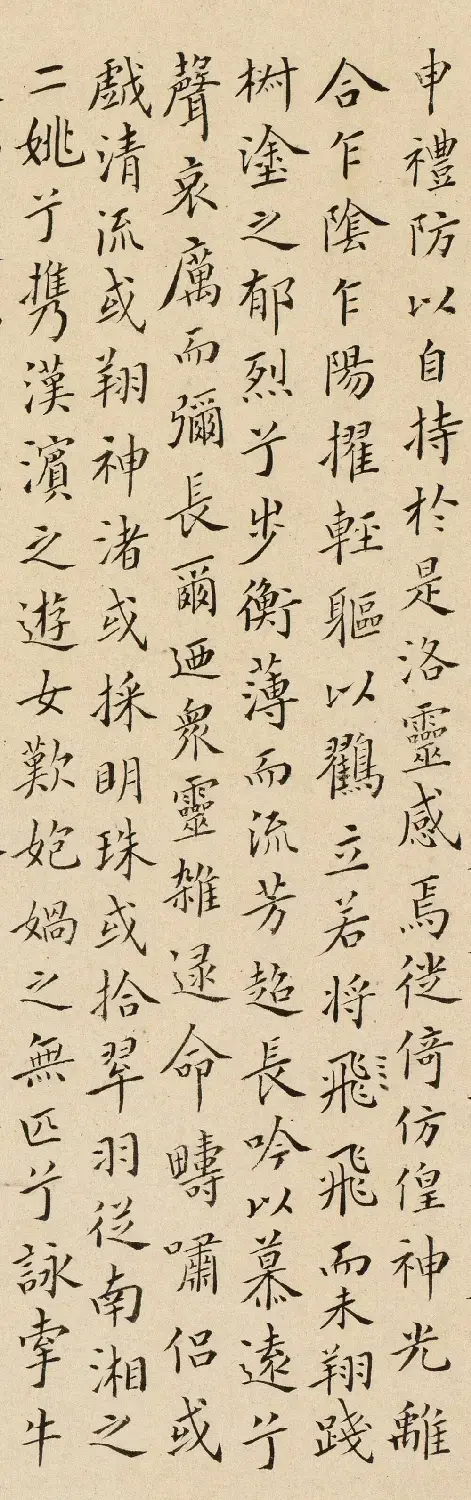 申禮防以自持於是洛靈感焉徙倚仿偟神光離
合乍陰乍陽擢輕軀以鸖立若将飛飛而未翔踐
椒塗之郁烈兮步衡薄而流芳超長吟以慕遠兮
聲哀厲而彌長爾迺衆靈雑遝命疇嘯侶或
戯清流或翔神渚或採明珠或拾翠羽従南湘之
二姚兮携漢濱之遊女歎㚿媧之無匹兮詠牽牛